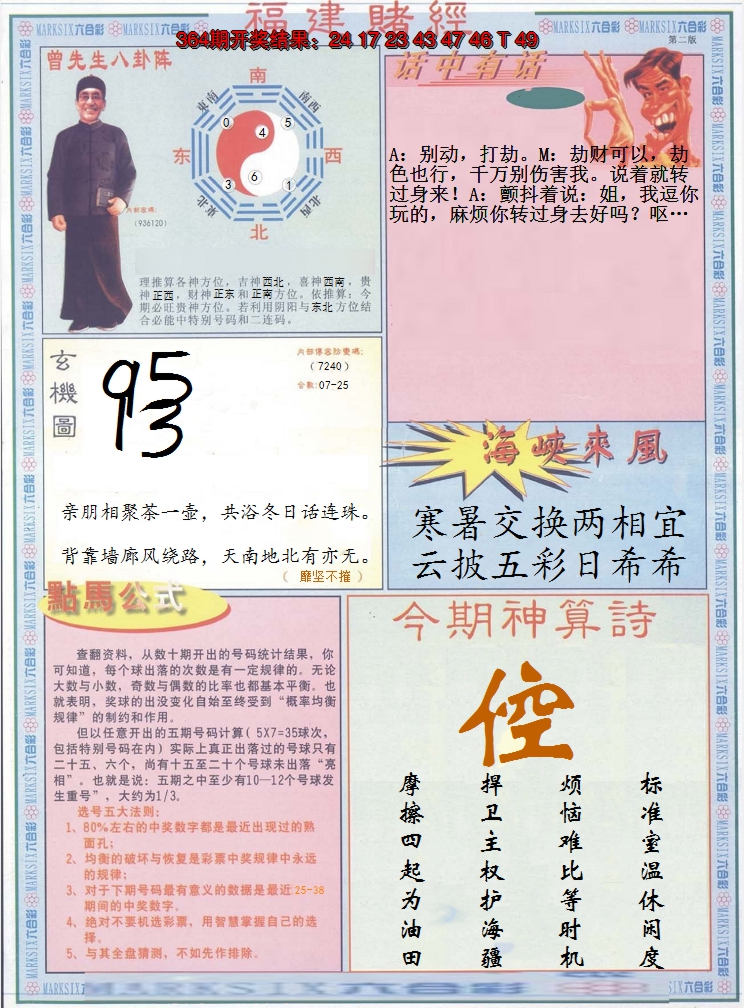 福建賭經
364期开奖结果：24 17 23 43 47 46 T 49
MARKSIX六合彩
第二版
曾先生八卦阵
南
东南
南西
0
5
4
东
西
3
6
1
东北
北西
北
内部密碼：
（936120）
理推算各神方位，吉神西北，喜神西南，贵
神正西，财神正东和正南方位。依推算：今
期必旺贵神方位。若利用阴阳与东北方位结
合必能中特别号码和二连码。
话中有话
A：别动，打劫。M：劫财可以，劫
色也行，千万别伤害我。说着就转
过身来！A：颤抖着说：姐，我逗你
玩的，麻烦你转过身去好吗？呕…
玄機圖
95
13
内部傳密防變碼：
（7240）
合数：07-25
亲朋相聚茶一壶，共浴冬日话连珠。
背靠墙廊风绕路，天南地北有亦无。
（ 靡坚不摧 ）
海峽來風
寒暑交换两相宜
云披五彩日希希
點馬公式
查翻资料，从数十期开出的号码统计结果，你
可知道，每个球出落的次数是有一定规律的。无论
大数与小数，奇数与偶数的比率也都基本平衡。也
就表明，奖球的出没变化自始至终受到“概率均衡
规律”的制约和作用。
但以任意开出的五期号码计算（5X7=35球次，
包括特别号码在内）实际上真正出落过的号球只有
二十五、六个，尚有十五至二十个号球未出落“亮
相”。也就是说：五期之中至少有10—12个号球发
生重号”，大约为1/3。
选号五大法则：
1、80%左右的中奖数字都是最近出现过的熟
面孔；
2、均衡的破坏与恢复是彩票中奖规律中永远
的规律；
3、对于下期号码最有意义的数据是最近25-38
期间的中奖数字。
4、绝对不要机选彩票，用智慧掌握自己的选
择。
5、与其全盘猜测，不如先作排除。
今期神算詩
倥
标准室温休闲度
烦恼难比等时机
捍卫主权护海疆
摩擦四起为油田